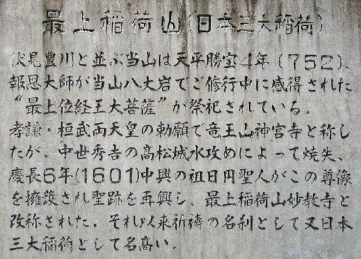 最上稲荷山(日本三大稲荷)
伏見豊川と並ぶ当山は天平勝宝4年(752)、
報恩大師が当山八丈岩でご修行中に感得された
“最上位経王大菩薩”が祭祀されている。
孝謙・桓武両天皇の勅願で竜王山神宮寺と称し
たが、中世秀吉の高松城水攻めによって焼失、
慶長6年(1601)中興の祖日円聖人がこの尊像
を擁護され聖跡を再興し、最上稲荷山妙教寺と
改称された。それより以来祈祷の名刹として又日本
三大稲荷として名高い。